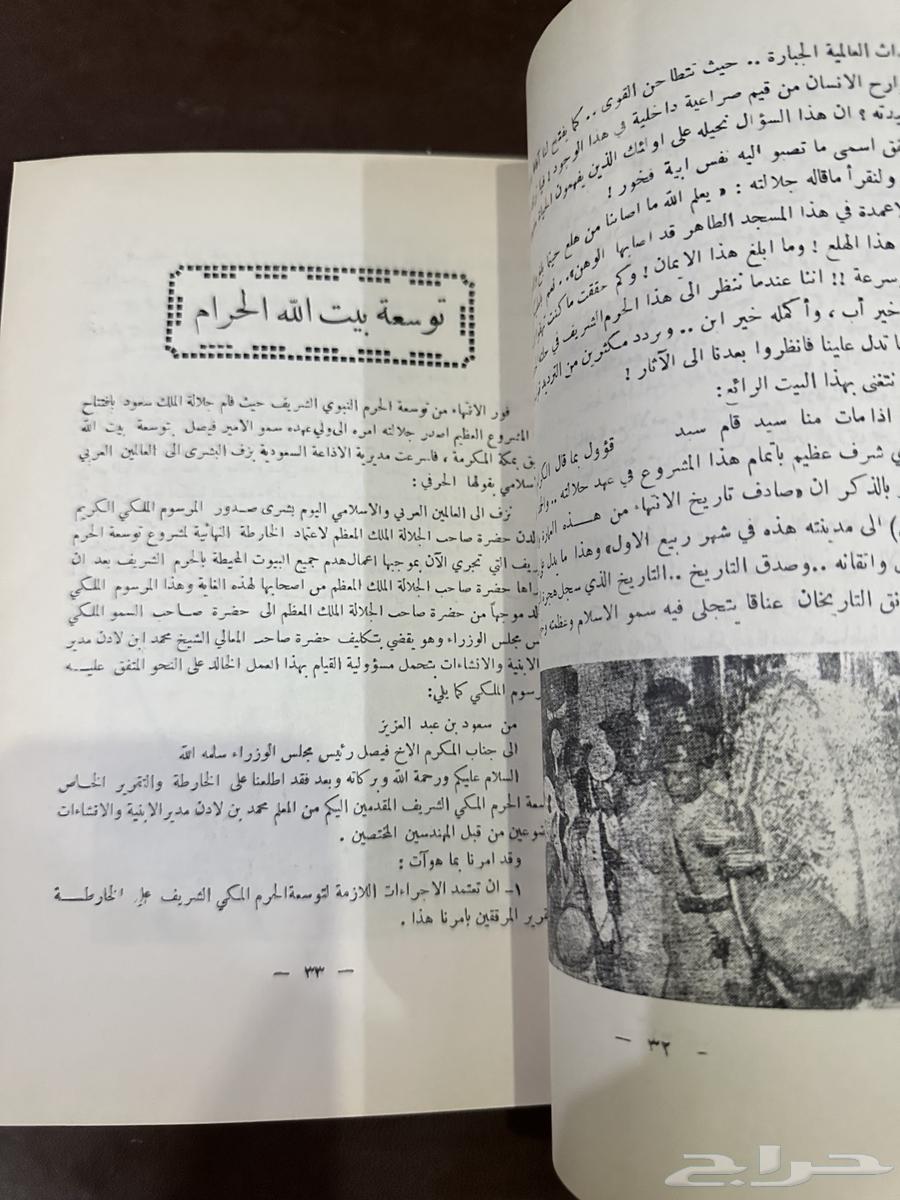 ـداث العالمية الجبارة .. حيث تتطاحن القوى .. كما يفتح لنا
ـوارح الانسان من قيم صراعية داخلية في هذا الوجود !
ـيدته ؟ ان هذا السؤال نحيله على اولئك الذين يفهمون
ـقق اسمى ما تصبو اليه نفس ابية فخور !
ولنقرأ ماقاله جلالته : « يعلم الله ما اصابنا من هلع حينما
لاعمدة في هذا المسجد الطاهر قد اصابها الوهن» .. نعم
هذا الهلع ! وما ابلغ هذا الايمان ! وكم حققت ما كنت
سرعة !! اننا عندما ننظر الى هذا الحرم الشريف في
خير أب ، وأكمله خير ابن .. ونردد مكثرين من الترديد
ـا تدل علينا فانظروا بعدنا الى الآثار !
نتغنى بهذا البيت الرائع :
اذا مات منا سيد قام سيد قؤول بما قال
ـي شرف عظيم باتمام هذا المشروع في عهد جلالته ..
بالذكر ان «صادف تاريخ الانتهاء من هـــذه
) الى مدينته هذه في شهر ربيع الاول» وهذا ما يدل
واتقانه .. وصدق التاريخ .. التاريخ الذي سجل
ـق التاريخان عناقا يتجلى فيه سمو الاسلام وعظمته
— ٣٢ -
توسعة بيت الله الحرام
فور الانتهاء من توسعة الحرم النبوي الشريف حيث قام جلالة الملك سعود بافتتاح
المشروع العظيم اصدر جلالته امره الى ولي عهده سمو الامير فيصل بتوسعة بيت الله
ـق بمكة المكرمة ، فاسرعت مديرية الاذاعة السعودية بزف البشرى الى العالمين العربي
ـسلامي بقولها الحرفي :
نزف الى العالمين العربي والاسلامي اليوم بشرى صدور المرسوم الملكي الكريم
لدن حضرة صاحب الجلالة الملك المعظم لاعتماد الخارطة النهائية لمشروع توسعة الحرم
ـيف التي تجري الآن بموجبها اعمال هدم جميع البيوت المحيطة بالحرم الشريف بعد ان
ـراها حضرة صاحب الجلالة الملك المعظم من اصحابها لهذه الغاية وهذا المرسوم الملكي
ـلد موجهاً من حضرة صاحب الجلالة الملك المعظم الى حضرة صـاحب السمو الملكي
ـس مجلس الوزراء وهو يقضي بتكليف حضرة صاحب المعالي الشيخ محمد ابن لادن مدير
الابنية والانشاءات بتحمل مسؤولية القيام بهذا العمل الخالد على النحو المتفق عليـه
ـرسوم الملكي كما يلي :
من سعود بن عبد العزيز
الى جناب المكرم الاخ فيصل رئيس مجلس الوزراء سلمه الله
السلام عليكم ورحمة الله وبركاته وبعد فقد اطلعنا على الخارطة والتقرير الخاص
ـسعة الحرم المكي الشريف المقدمين اليكم من المعلم محمد بن لادن مدير الابنية والانشاءات
ـضوعين من قبل المهندسين المختصين .
وقد امرنا بما هو آت :
١ – ان تعتمد الاجراءات اللازمة لتوسعة الحرم المكي الشريف على الخارطـــة
ـقرير المرفقين بامرنا هذا .
— ٣٣ —
حراج